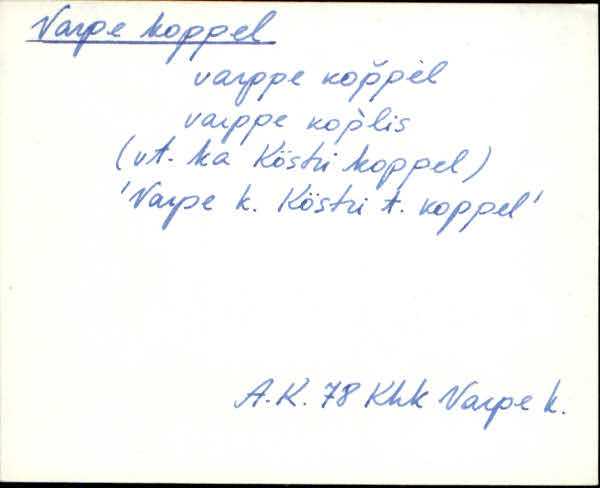 Varpe koppel
varppe kop̆pèl
varppe kop̀lis
(vt. ka Köstri koppel)
'Varpe k. Köstri t. koppel'
A.K. 78 Khk Varpe k.